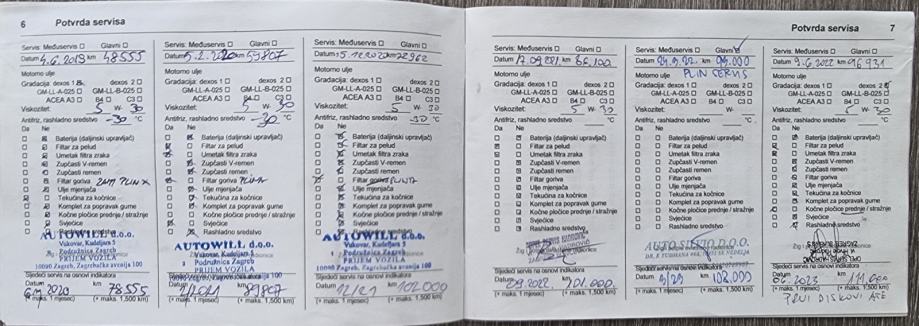 6 Potvrda servisa
Servis: Međuservis Glavni
Datum 4.6.2019 km 48555
Motorno ulje
Gradacija: dexos 1 dexos 2
GM-LL-A-025 GM-LL-B-025
ACEA A3 B4 C3
Viskozitet: 5 W- 30
Antifriz, rashladno sredstvo -30 °C
Da Ne
Baterija (daljinski upravljač)
Filtar za pelud
Umetak filtra zraka
Zupčasti V-remen
Zupčasti remen
Filtar goriva
Ulje mjenjača
Tekućina za kočnice
Komplet za popravak gume
Kočne pločice prednje / stražnje
Svjećice
Rashladno sredstvo
AUTOWILL d.o.o.
Vukovar, Kudeljars 5
Podružnica Zagreb
PRIJEM VOZILA
10090 Zagreb, Zagrebačka avenija 100
Sljedeći servis na osnovi indikatora
Datum 2020 km 78.555
(+ maks. 1 mjesec) (+ maks. 1.500 km)
Servis: Međuservis Glavni
Datum km
Motorno ulje
Gradacija: dexos 1 dexos 2
GM-LL-A-025 GM-LL-B-025
ACEA A3 B4 C3
Viskozitet: 5 W- 30
Antifriz, rashladno sredstvo -30 °C
Da Ne
Baterija (daljinski upravljač)
Filtar za pelud
Umetak filtra zraka
Zupčasti V-remen
Zupčasti remen
Filtar goriva
Ulje mjenjača
Tekućina za kočnice
Komplet za popravak gume
Kočne pločice prednje / stražnje
Svjećice
Rashladno sredstvo
AUTOWILL d.o.o.
Podružnica Zagreb
PRIJEM VOZILA
10090 Zagreb, Zagrebačka avenija 100
Sljedeći servis na osnovi indikatora
Datum km 89807
(+ maks. 1 mjesec) (+ maks. 1.500 km)
Servis: Međuservis Glavni
Datum km
Motorno ulje
Gradacija: dexos 1 dexos 2
GM-LL-A-025 GM-LL-B-025
ACEA A3 B4 C3
Viskozitet: 5 W- 30
Antifriz, rashladno sredstvo -30 °C
Da Ne
Baterija (daljinski upravljač)
Filtar za pelud
Umetak filtra zraka
Zupčasti V-remen
Zupčasti remen
Filtar goriva
Ulje mjenjača
Tekućina za kočnice
Komplet za popravak gume
Kočne pločice prednje / stražnje
Svjećice
Rashladno sredstvo
AUTOWILL d.o.o.
Vukovar, Kudeljars 5
Podružnica Zagreb
PRIJEM VOZILA
10090 Zagreb, Zagrebačka avenija 100
Sljedeći servis na osnovi indikatora
Datum 12/21 km 102000
(+ maks. 1 mjesec) (+ maks. 1.500 km)
Potvrda servisa 7
Servis: Međuservis Glavni
Datum 17.09.2021. km 86,100
Motorno ulje
Gradacija: dexos 1 dexos 2
GM-LL-A-025 GM-LL-B-025
ACEA A3 B4 C3
Viskozitet: 5 W- 30
Antifriz, rashladno sredstvo °C
Da Ne
Baterija (daljinski upravljač)
Filtar za pelud
Umetak filtra zraka
Zupčasti V-remen
Zupčasti remen
Filtar goriva
Ulje mjenjača
Tekućina za kočnice
Komplet za popravak gume
Kočne pločice prednje / stražnje
Svjećice
Rashladno sredstvo
Sljedeći servis na osnovi indikatora
Datum 09.2022. km 101.000.
(+ maks. 1 mjesec) (+ maks. 1.500 km)
Servis: Međuservis Glavni
Datum km
PLIN SERVIS
Motorno ulje
Gradacija: dexos 1 dexos 2
GM-LL-A-025 GM-LL-B-025
ACEA A3 B4 C3
Viskozitet: W-
Antifriz, rashladno sredstvo °C
Da Ne
Baterija (daljinski upravljač)
Filtar za pelud
Umetak filtra zraka
Zupčasti V-remen
Zupčasti remen
Filtar goriva
Ulje mjenjača
Tekućina za kočnice
Komplet za popravak gume
Kočne pločice prednje / stražnje
Svjećice
Rashladno sredstvo
D.O.O.
Sljedeći servis na osnovi indikatora
Datum km 108.000
(+ maks. 1 mjesec) (+ maks. 1.500 km)
Servis: Međuservis Glavni
Datum 9.6.2022 km 96931
Motorno ulje
Gradacija: dexos 1 dexos 2
GM-LL-A-025 GM-LL-B-025
ACEA A3 B4 C3
Viskozitet: 5 W- 30
Antifriz, rashladno sredstvo °C
Da Ne
Baterija (daljinski upravljač)
Filtar za pelud
Umetak filtra zraka
Zupčasti V-remen
Zupčasti remen
Filtar goriva
Ulje mjenjača
Tekućina za kočnice
Komplet za popravak gume
Kočne pločice prednje / stražnje
Svjećice
Rashladno sredstvo
Sljedeći servis na osnovi indikatora
Datum 06.2023 km 111.000
(+ maks. 1 mjesec) (+ maks. 1.500 km)
PRVI DISKOVI